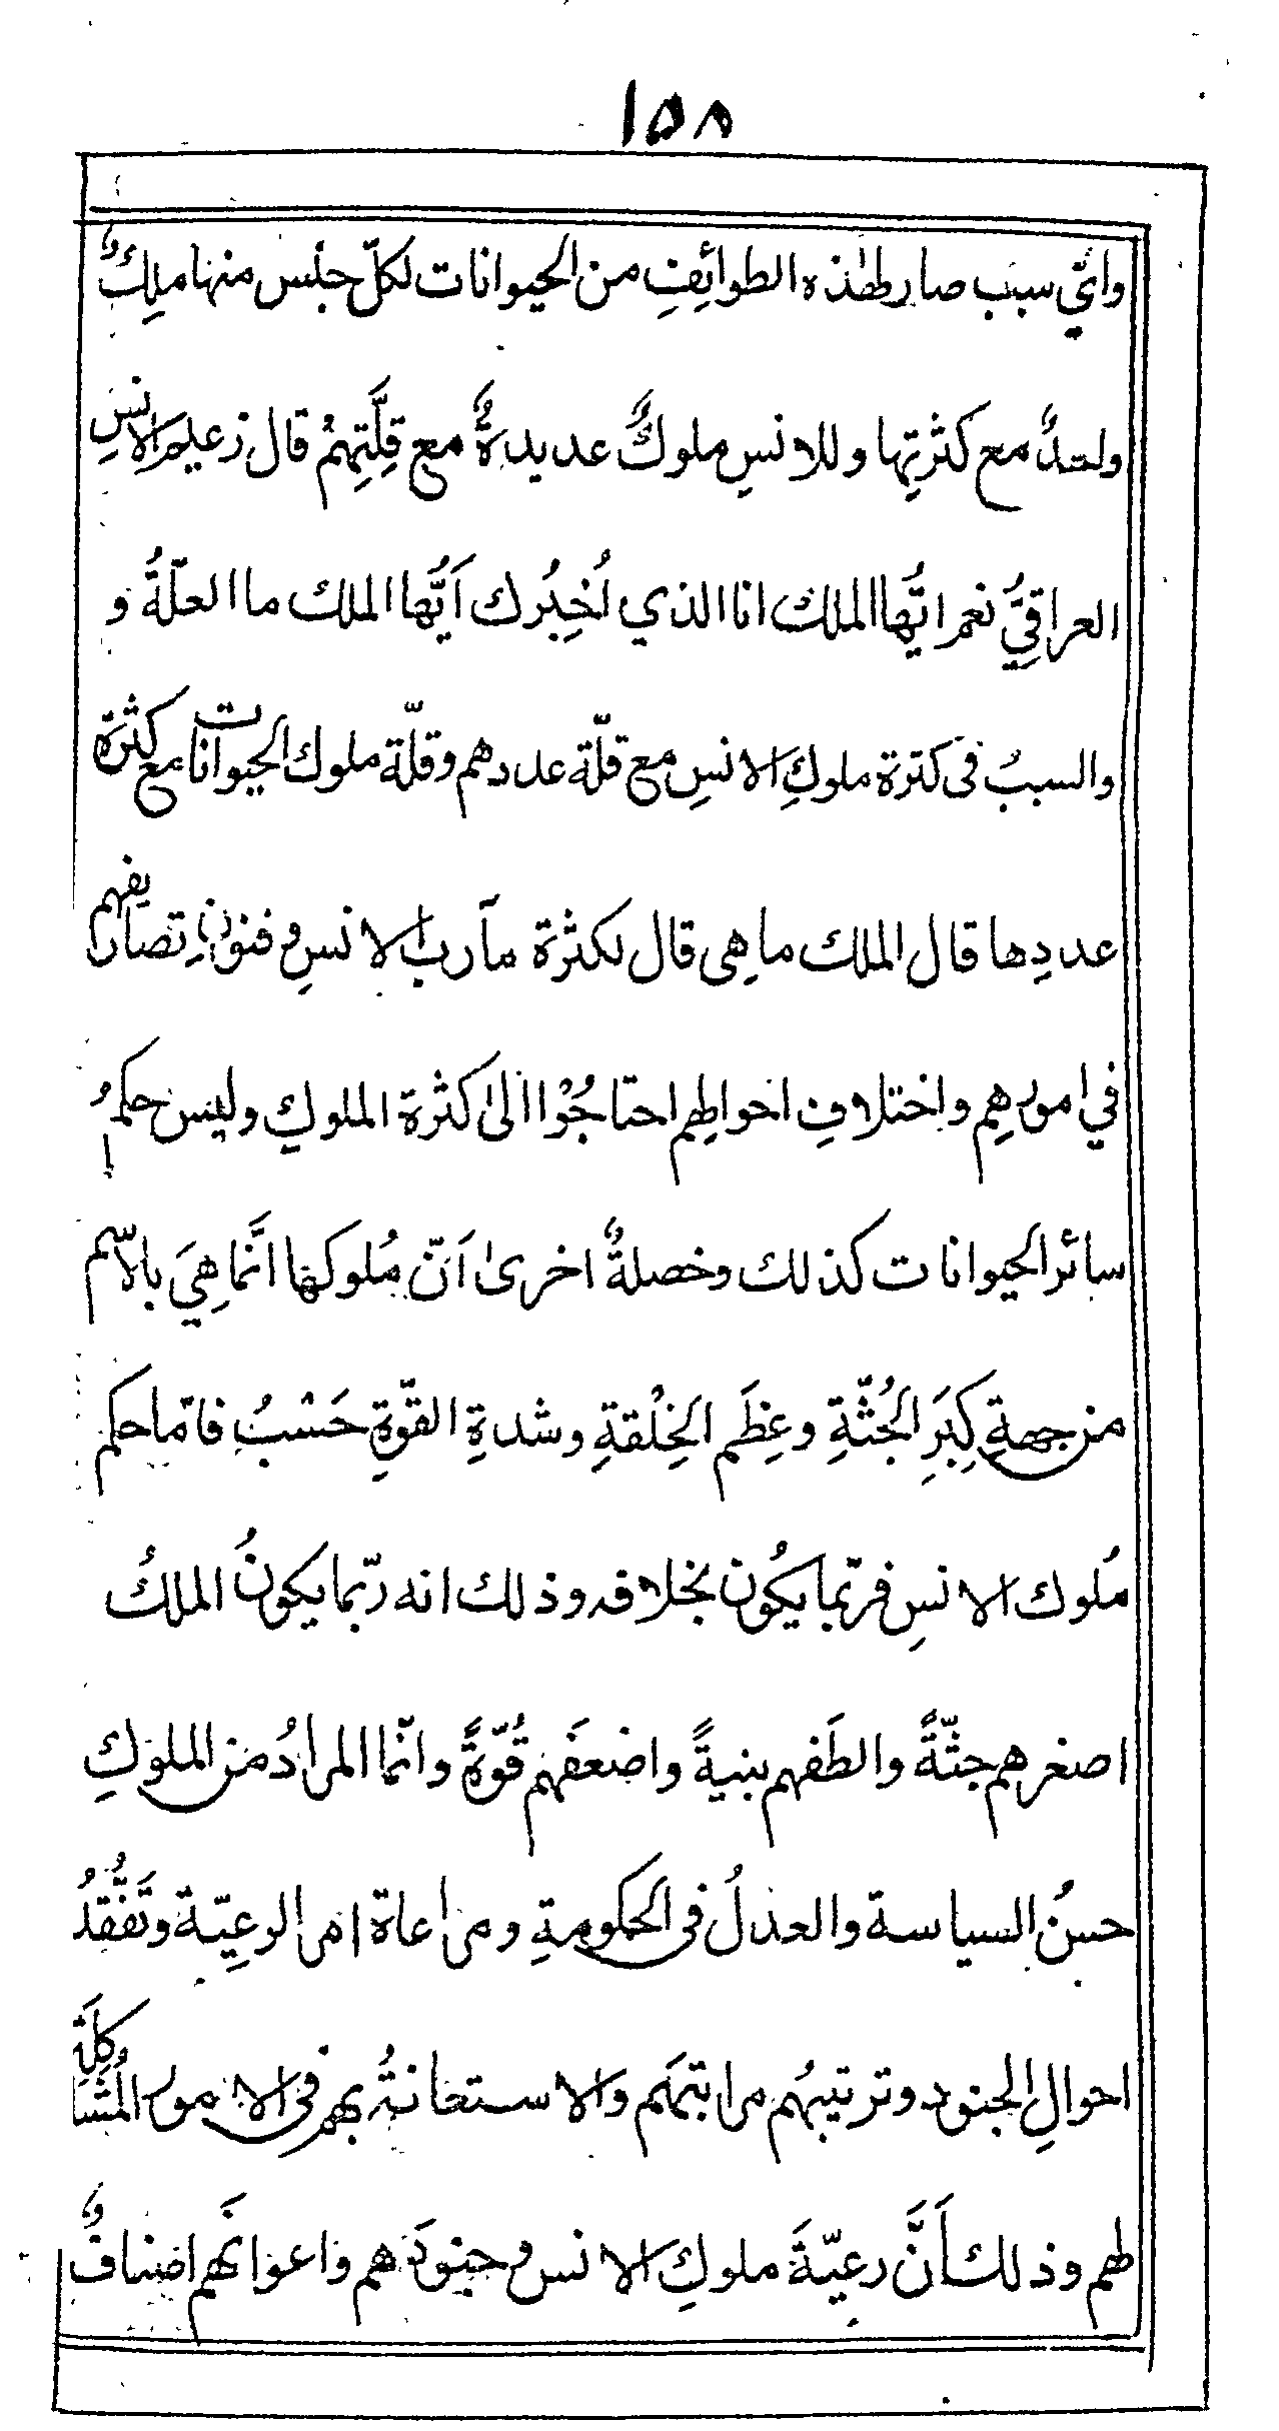 ١٥٨
وايّ سبب صار لهٰذه الطوائِفِ من الحيوانات لكلّ جنس منها ملِكٌ
واحدٌ مع كثرتِها وللانسِ ملوكٌ عديدةٌ مع قِلَّتِهِمْ قال زعيم الانسِ
العراقِيُّ نعم ايُّها الملك انا الذي اُخبِرُك اَيُّها الملك ما العلّةُ و
والسببُ فى كثرة ملوكِ الانسِ مع قلّة عددهم وقلّة ملوك الحيوانات مع كثرة
عددِها قال الملك ما هِى قال لكثرة مآرب الانسِ وفنونِ تصاريفهم
في امورهِم واختلافِ احوالِهم احتاجُوْا الىٰ كثرة الملوكِ وليس حكمُ
سائر الحيوانات كذلك وخصلةٌ اخرىٰ اَنّ مُلوكها انَّما هِيَ بالاسم
من جهةِ كِبَرِ الجُثّةِ وعِظَم الخِلْقةِ وشدةِ القوّةِ حَسْبُ فامّا حكم
مُلوك الانسِ فربّما يكُون بخلافه وذلك انه ربّما يكونُ الملكُ
اصغرهم جثّةً والطَفهم بنيةً واضعفَهم قُوّةً وانّما المرادُ من الملوكِ
حسنُ السياسة والعدلُ فى الحكومةِ ومراعاة امر الرعِيّة وتَفَقُّدُ
احوالِ الجنود وترتيبُهم مراتبَهَم والاستعانةُ بهم فى الامور المُشاكِلَةِ
لهم وذلك أَنَّ رعيّةَ ملوكِ الانس وجنودَهم واعوانَهم اصنافٌ